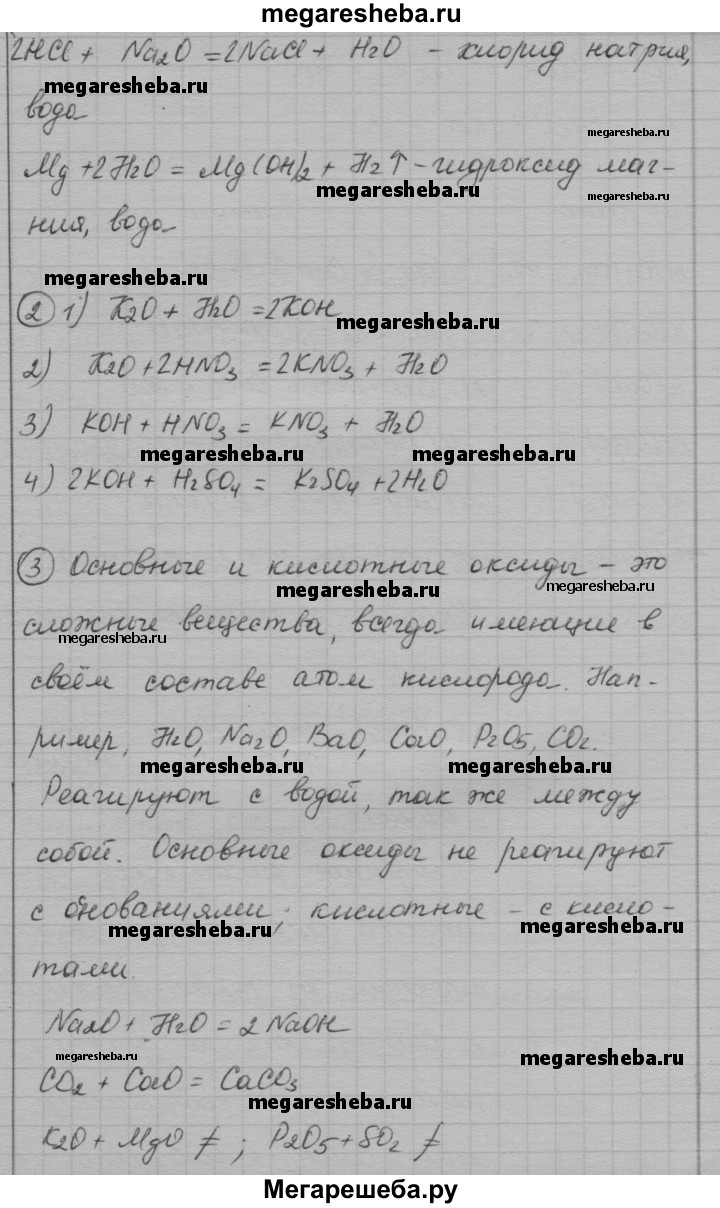 megaresheba.ru
2HCl + Na₂O = 2NaCl + H₂O - хлорид натрия,
megaresheba.ru
вода
megaresheba.ru
Mg + 2H₂O = Mg(OH)₂ + H₂↑ - гидроксид маг-
megaresheba.ru
megaresheba.ru
ния, вода
megaresheba.ru
② 1) K₂O + H₂O = 2KOH
megaresheba.ru
2) K₂O + 2HNO₃ = 2KNO₃ + H₂O
3) KOH + HNO₃ = KNO₃ + H₂O
megaresheba.ru
megaresheba.ru
4) 2KOH + H₂SO₄ = K₂SO₄ + 2H₂O
③ Основные и кислотные оксиды - это
megaresheba.ru
megaresheba.ru
сложные вещества, всегда имеющие в
megaresheba.ru
своём составе атом кислорода. Нап-
ример, H₂O, Na₂O, BaO, CaO, P₂O₅, CO₂.
megaresheba.ru
megaresheba.ru
Реагируют с водой, так же между
собой. Основные оксиды не реагируют
с обнованиями; кислотные - с кисло-
megaresheba.ru
megaresheba.ru
тами.
Na₂O + H₂O = 2NaOH
megaresheba.ru
megaresheba.ru
CO₂ + CaO = CaCO₃
megaresheba.ru
K₂O + MgO ≠ ; P₂O₅ + SO₂ ≠
Мегарешеба.ру